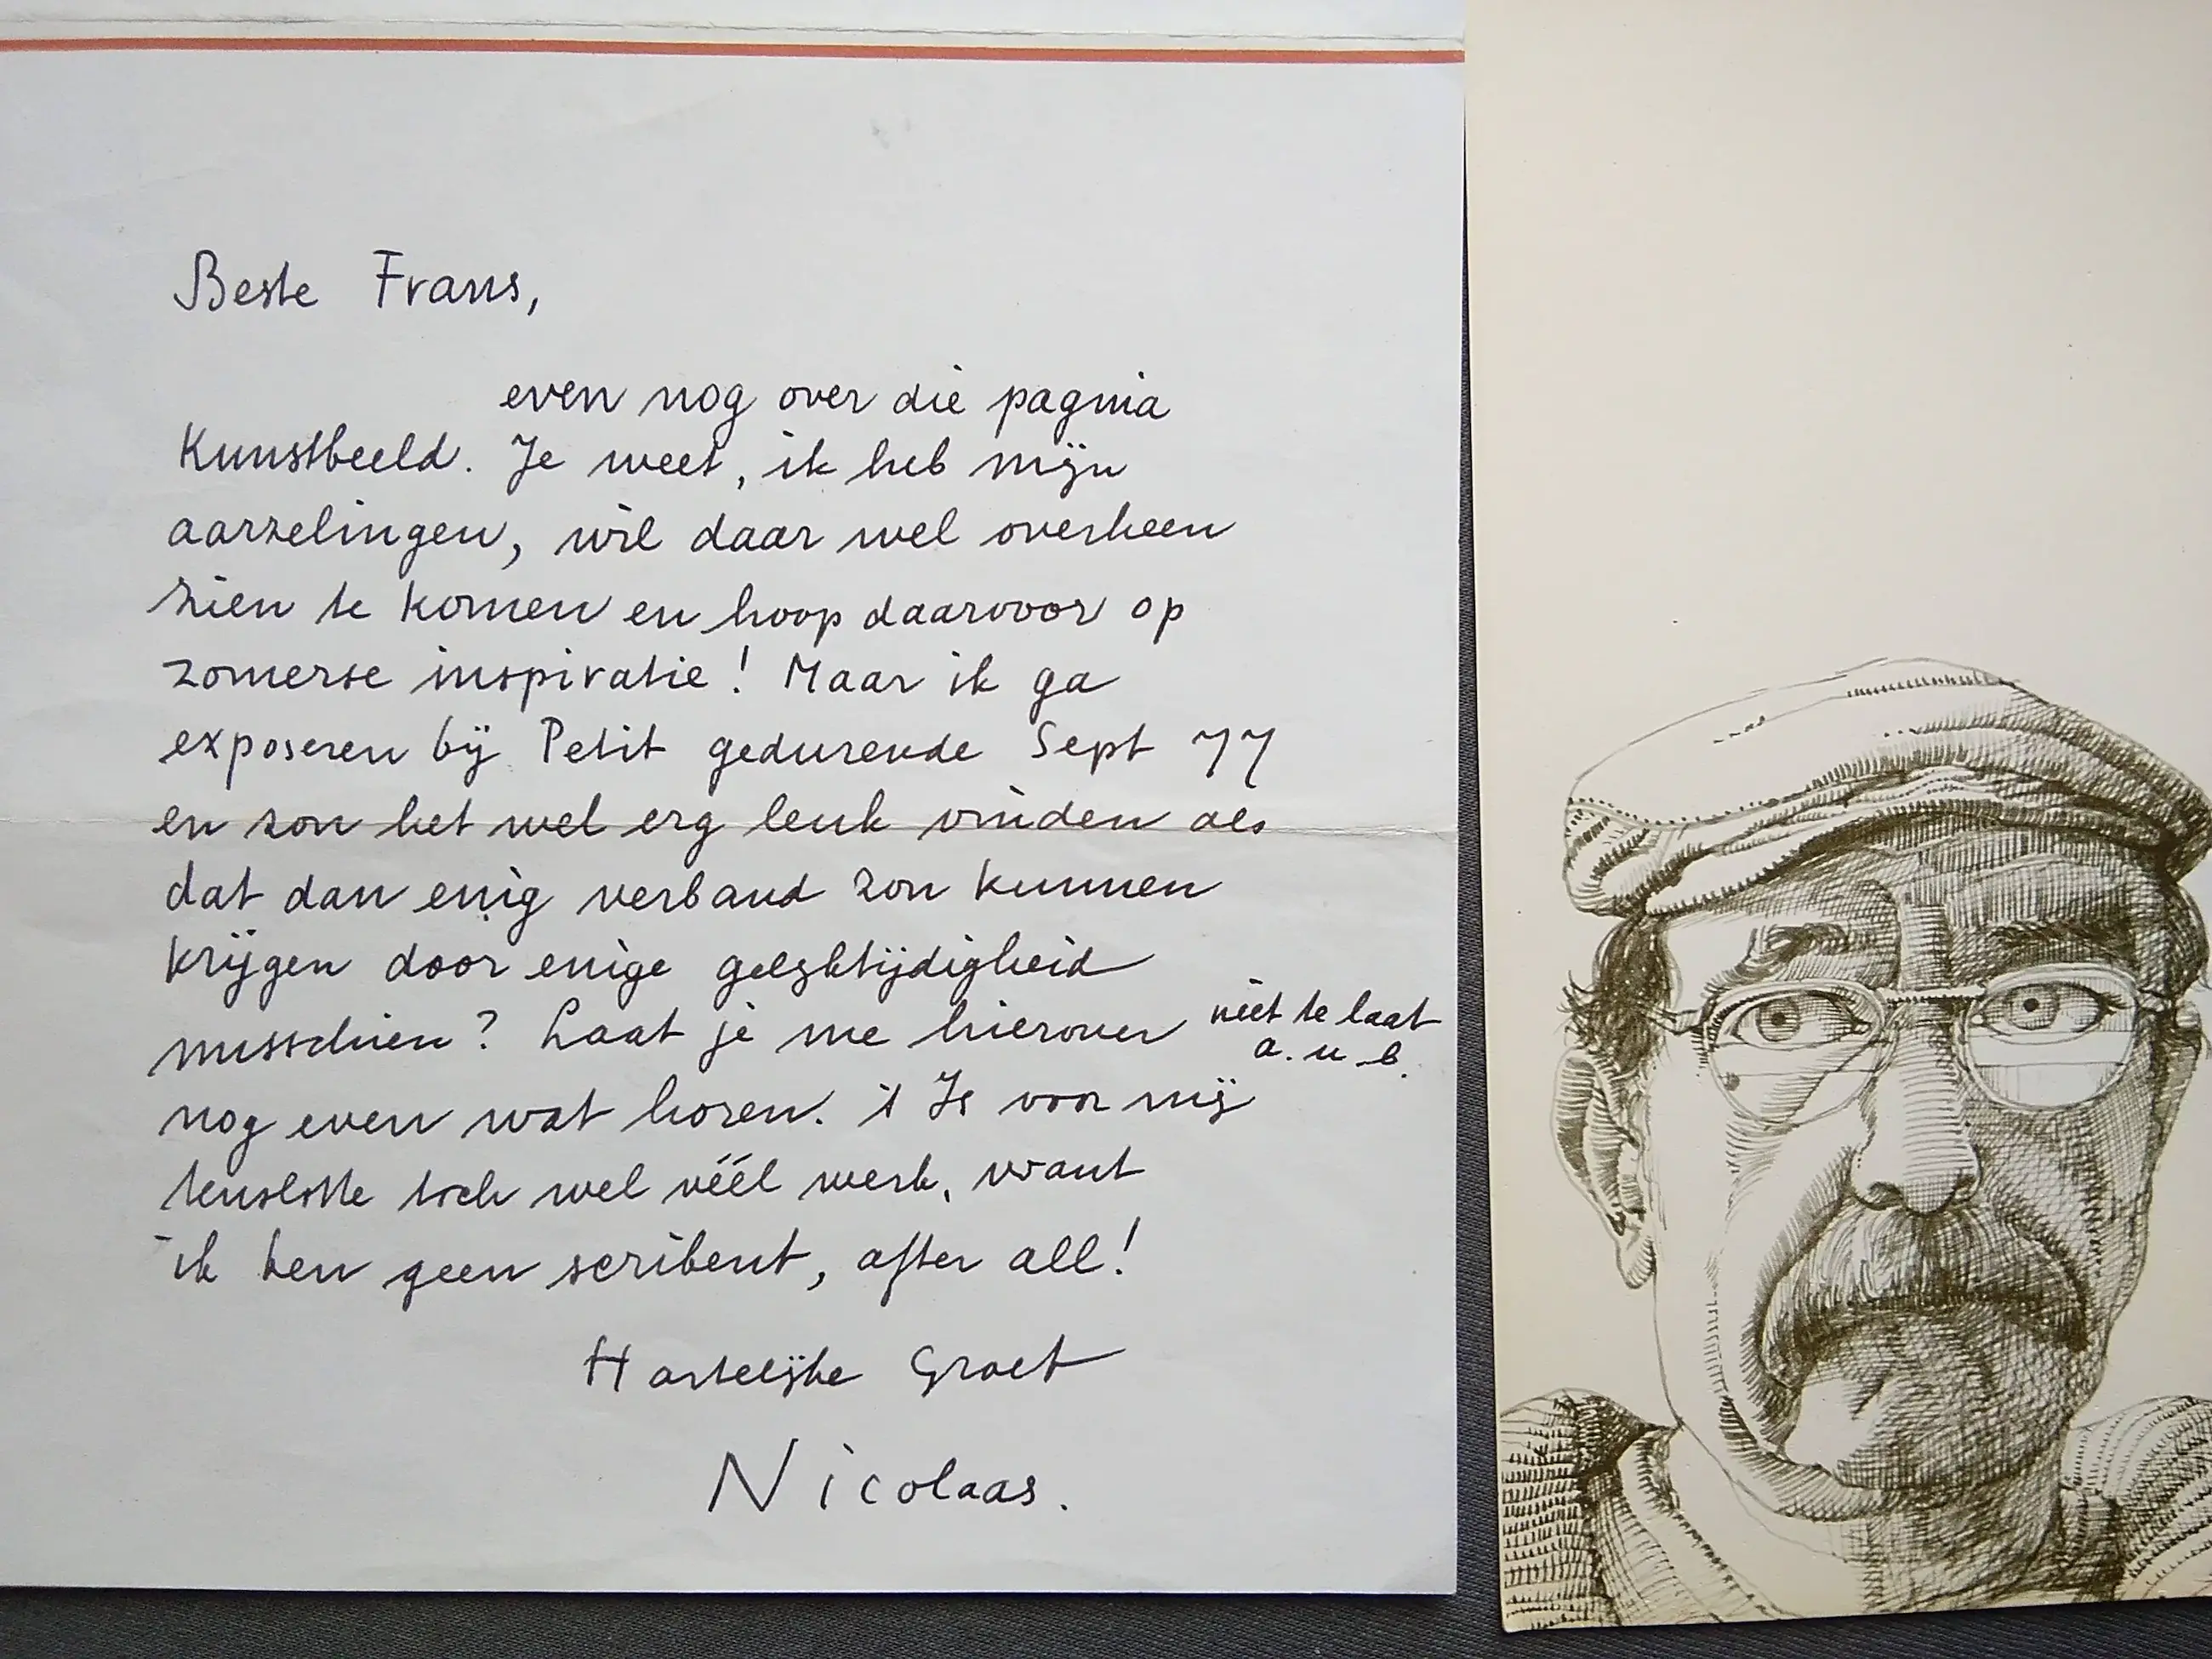 Beste Frans,
even nog over die pagina
Kunstbeeld. Je weet, ik heb mijn
aarzelingen, wil daar wel overheen
zien te komen en hoop daarvoor op
zomerse inspiratie! Maar ik ga
exposeren bij Petit gedurende Sept 77
en zou het wel erg leuk vinden als
dat dan enig verband zou kunnen
krijgen door enige gelijktijdigheid
misschien? Laat je me hierover niet te laat
a.u.b.
nog even wat horen. 't Is voor mij
tenslotte toch wel véél werk, want
ik ben geen scribent, after all!
Hartelijke Groet
Nicolaas.